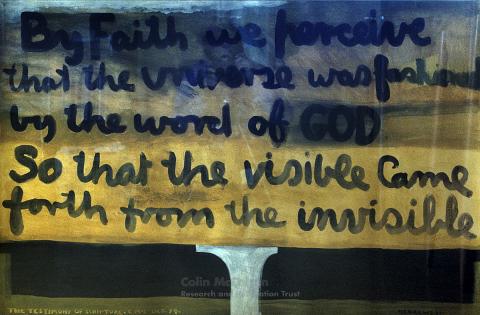 By Faith we perceive
that the universe was fashioned
by the word of GOD
So that the visible Came
forth from the invisible
Colin
Research and Trust
THE TESTIMONY OF SCRIPTURE